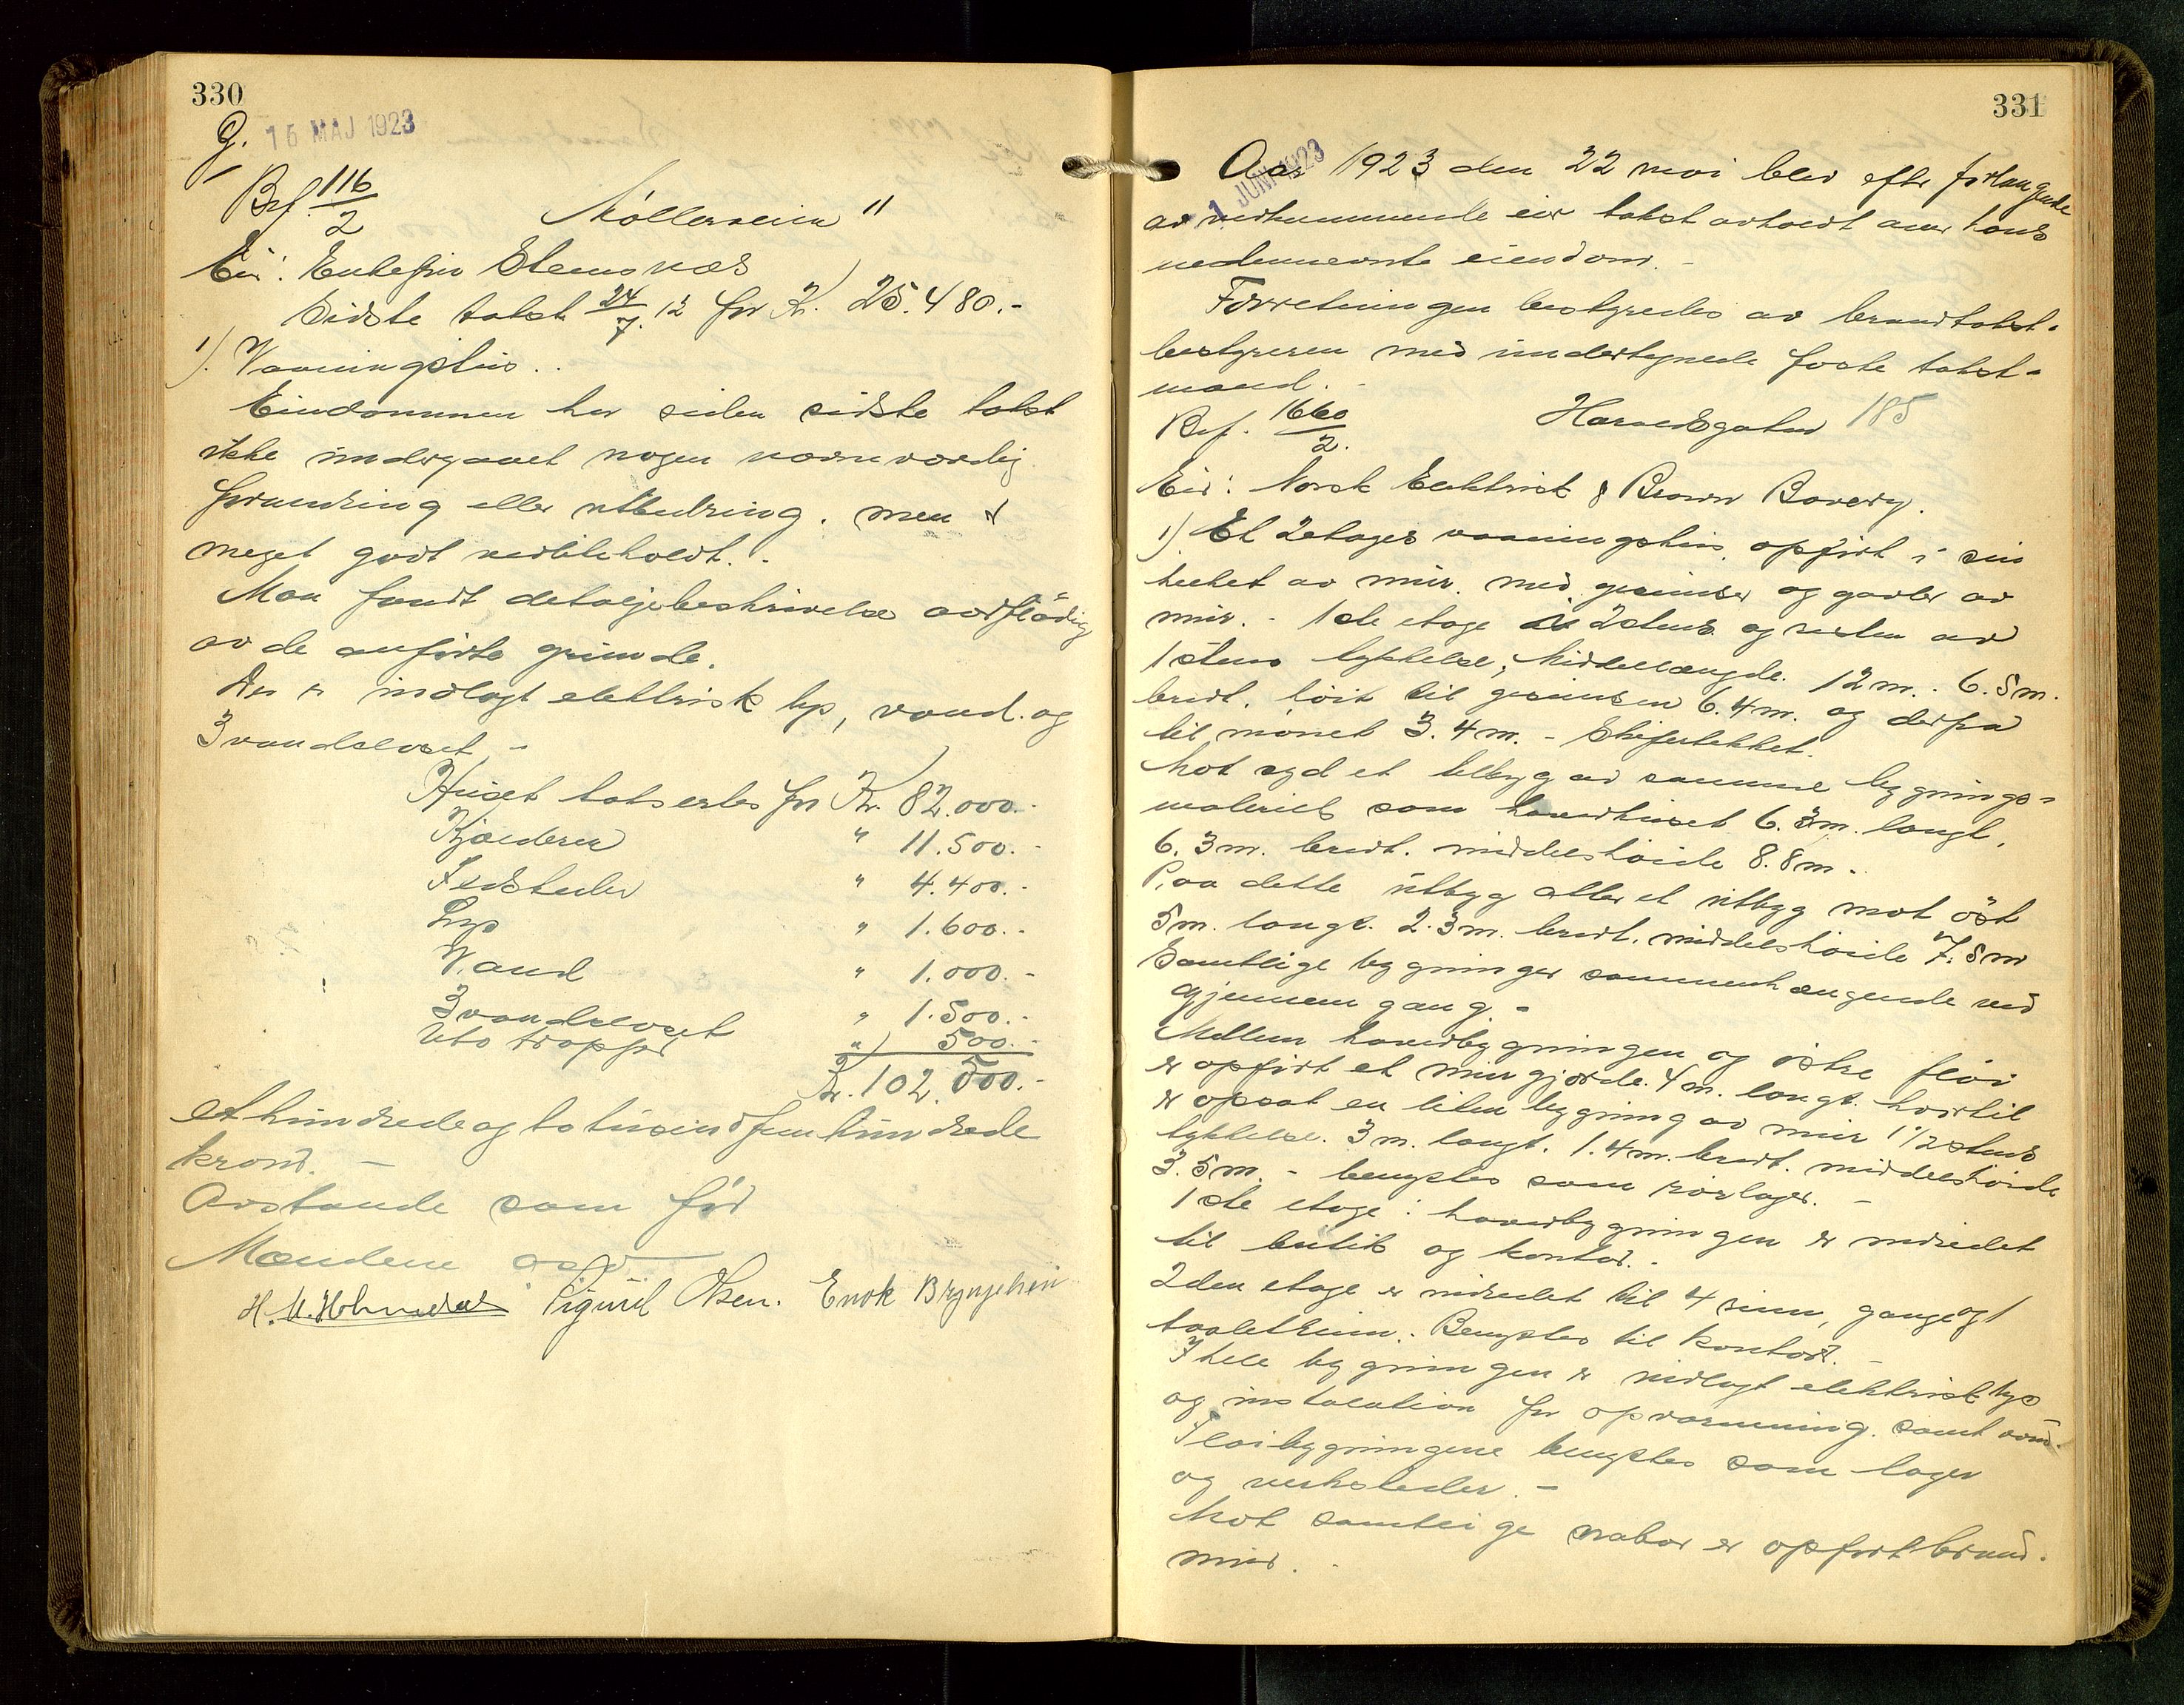 330
G. 15 MAJ 1923
Brf. 116/2 Møllerveien 11
Eier: Enkefru Stemsnæs
Sidste takst 24/7. 12 for Kr. 25.480.-
1). Vaaningshus..
Eiendommen har siden sidste takst
ikke undergaaet nogen nævneværdig
forandring eller utbedring. men er
meget godt vedlikeholdt. -
Man fandt detaljebeskrivelse overflödig
av de anførte grunde.
Der er indlagt elektrisk lys, vand. og
3 vandcloset -
Huset takseres for Kr. 82.000.-
Kjælderen " 11.500.-
Ildsteder " 4.400.-
Lys " 1.600.-
Vand " 1.000.-
3 vandcloset " 1.500.-
Utv. trapper " 500.-
Kr. 102.500.-
et hundrede og to tusind fem hundrede
kroner. -
Avstande som før
Mændene
Sigurd Olsen. Enok Brynjelsen
331
1 JUNI 1923
Aar 1923 den 22 mai blev efter forlangende
av vedkommende eier takst avholdt over hans
nedennevnte eiendom. -
Forretningen bestyredes av brandtakst-
bestyreren med undertegnede faste takst-
mænd. -
Brf. 1660/2. Haraldsgaten 185
Eier: Norsk Elektrisk & Brown Bovery.
1). Et 2 etages vaaningshus, opført i sin
helhet av mur. med gesimser og gavler av
mur. - 1ste etage av 2 stens og resten av
1 stens tykkelse; Middellængde. 12 m. - 6.5 m.
bredt, høit til gesimsen 6.4 m. og derfra
til mønet 3.4 m. - Skifertekket.
Mot syd et tilbyg av samme bygnings-
materiel som hovedhuset 6.3 m. langt,
6.3 m. bredt. middelshøide 8.8 m. -
Paa dette utbyg atter et utbyg mot öst
5 m. langt. 2.3 m. bredt. middelshøide 7.5 m
Samtlige bygninger sammenhængende ved
gjennemgang. -
Mellem hovedbygningen og østre fløi
er opført et mur gjærde. 4 m. langt. hvortil
er opsat en liten bygning av mur 1 1/2 stens
tykkelse. 3 m. langt. 1.4 m. bredt. middelshøide
3.5 m. - benyttes som rørlager. -
1ste etage i hovedbygningen er indredet
til butik og kontor. -
2den etage er indredet til 4 rum, gange og 1
toaletrum. - Benyttes til kontor. -
I hele bygningen er indlagt elektrisk lys
og instalation for opvarmning. samt vand.
Fløibygningene benyttes som lager
og verksteder. -
Mot samtlige naboer er opført brand-
mur. -